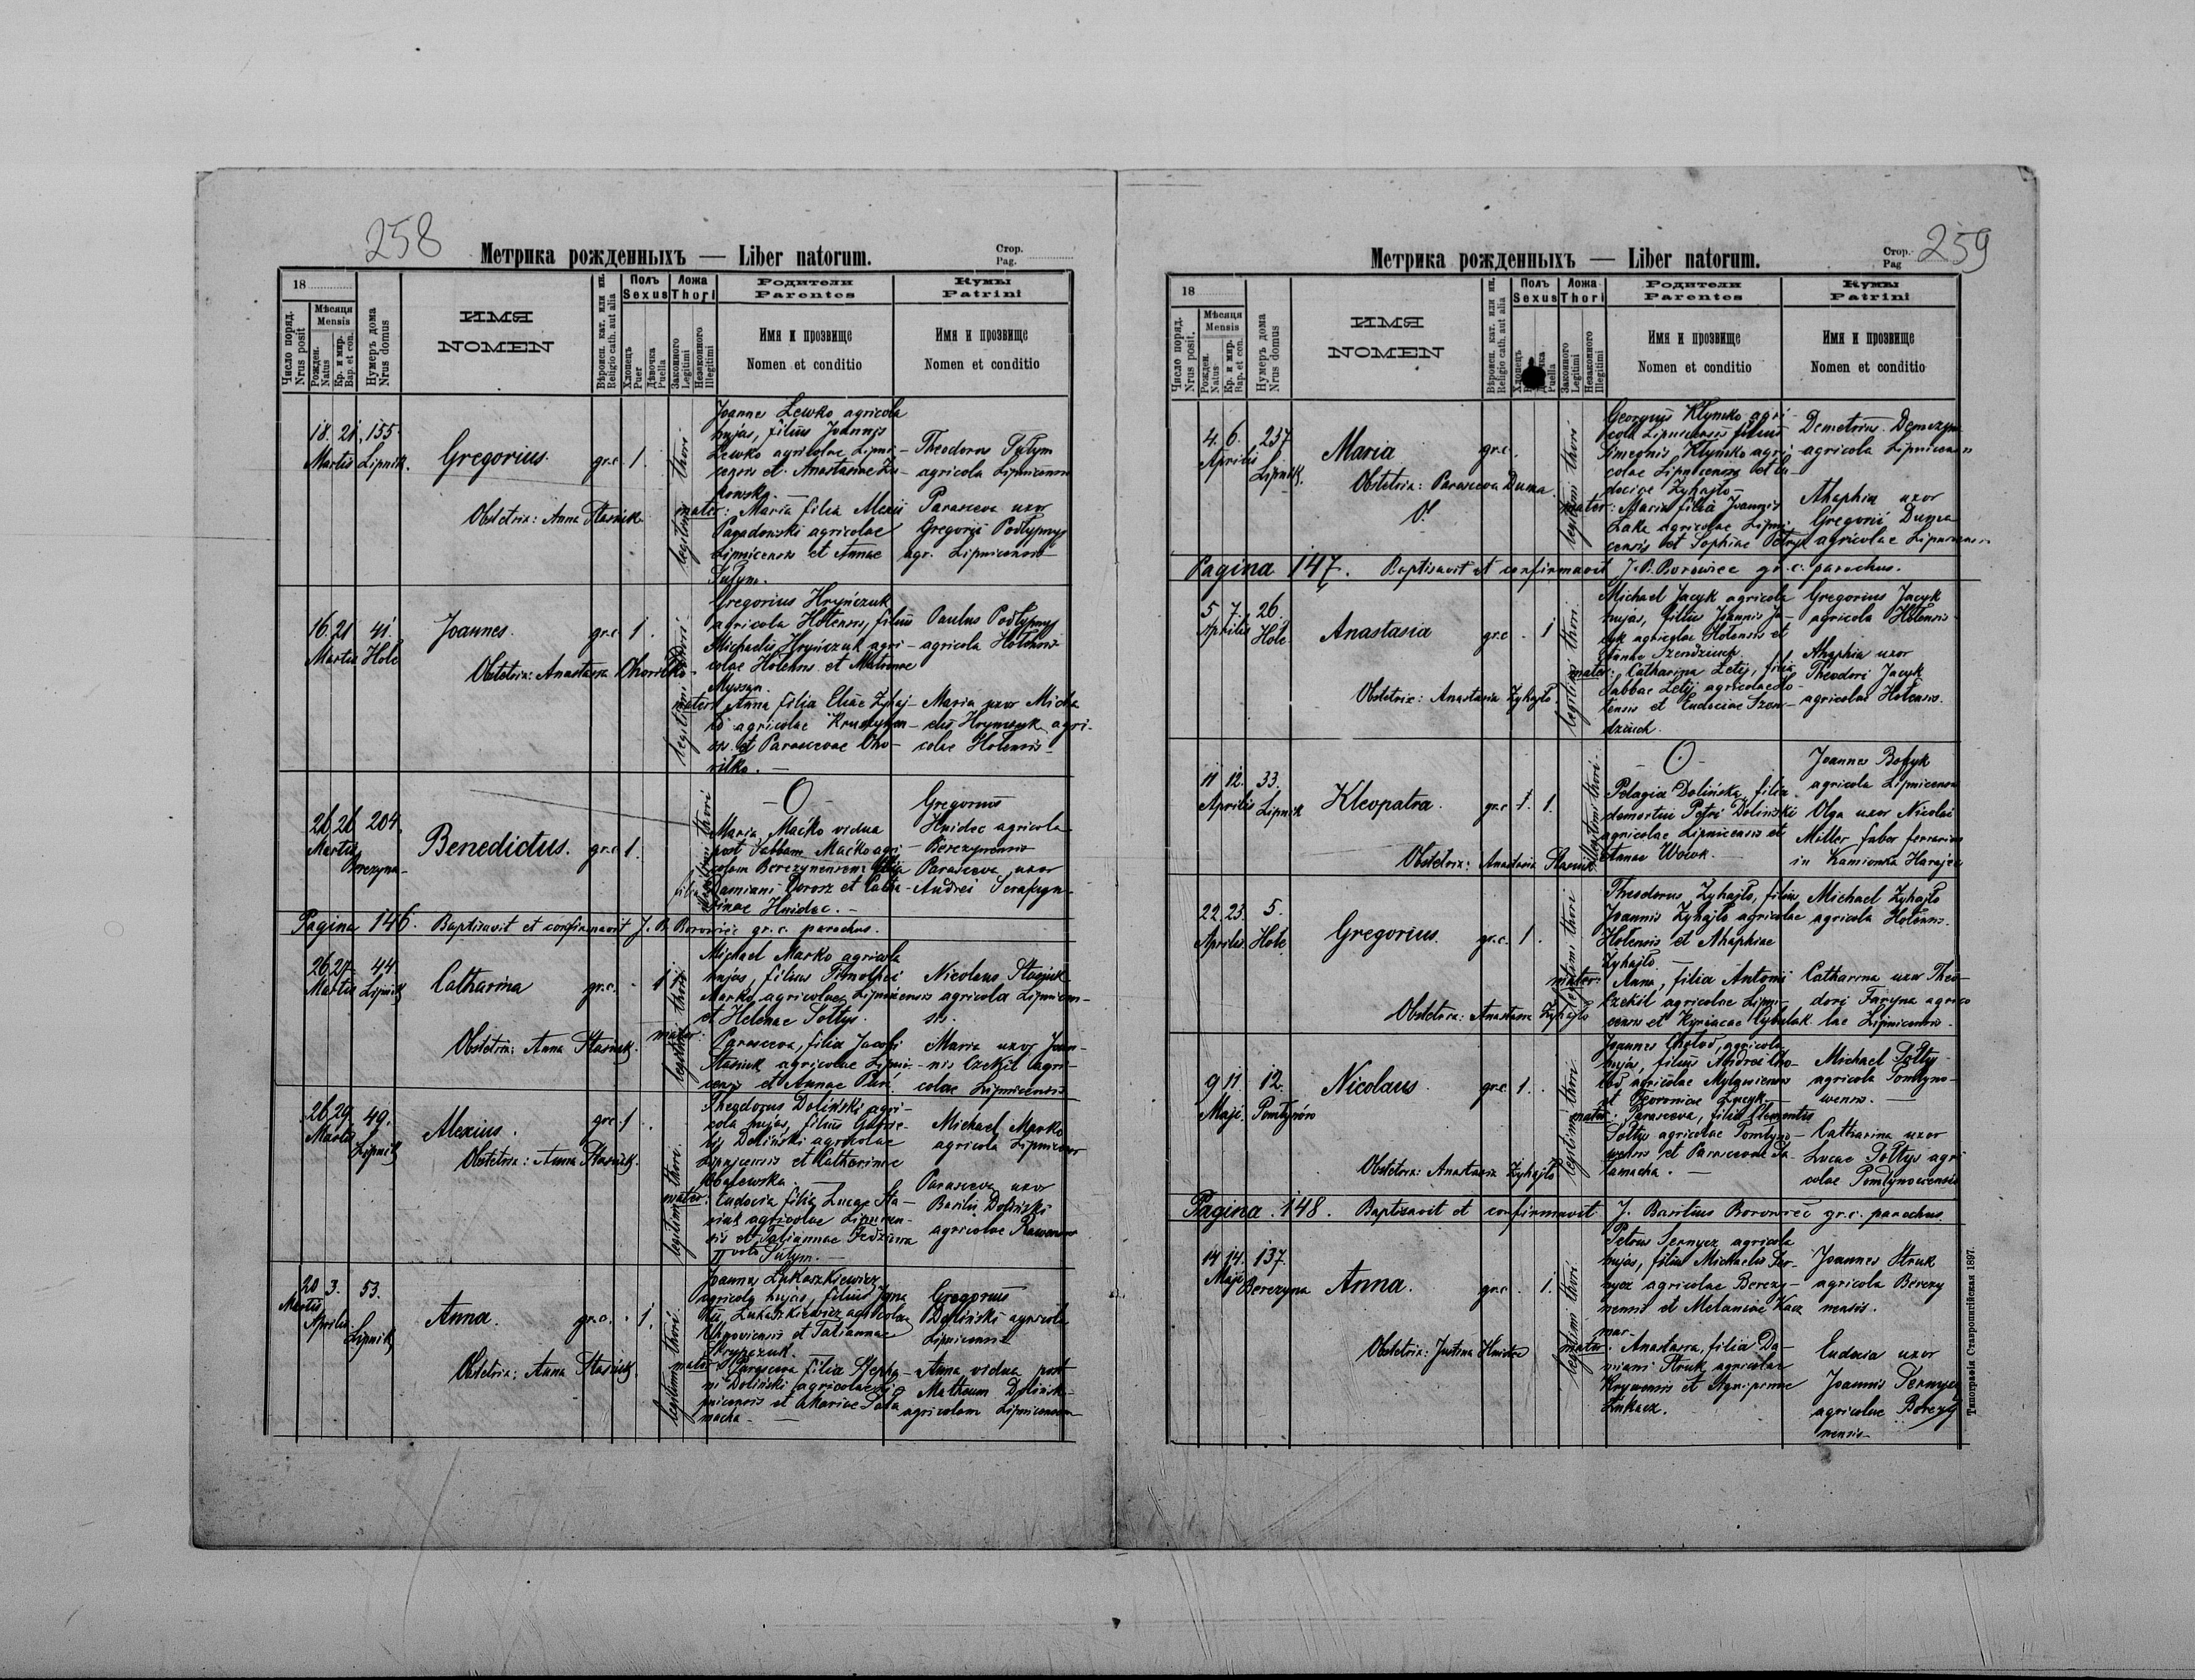 258
Метрика рожденныхъ — Liber natorum.
Стор.
Pag.
18
Число поряд.
Nrus posit
Мѣсяця
Mensis
Рожден.
Natus
Кр. и мир.
Bap. et con.
Нумеръ дома
Nrus domus
ИМЯ
NOMEN
Вѣроисп. кат. или ин.
Religio cath. aut alia
Полъ
Sexus
Хлопець
Puer
Дѣвочка
Puella
Ложа
Thori
Законного
Legitimi
Незаконного
Illegitimi
Родители
Parentes
Имя и прозвище
Nomen et conditio
Кумы
Patrini
Имя и прозвище
Nomen et conditio
18. 21. 155.
Martii Lipnik.
Gregorius.
gr.c. 1.
legitimi thori
Obstetrix: Anna Stasiuk
Joannes Lewko agricola
hujas, filius Joannis
Lewko agricolae Lipni-
censis et Anastasiae
kowska.
mater: Maria filia Alexii
agricolae
Lipnicensis et Annae
Sułym.
Theodorus Sułym
agricola Lipnicensis
Parasceva uxor
Gregorii Podłypnyj
agr. Lipnicensis
16. 21. 41.
Martii Hole
Joannes.
gr.c. 1.
legitimi thori
Obstetrix: Anastasia
Gregorius Hryńczuk
agricola Holensis, filius
Michaelis Hryńczuk agri-
colae Holensis et Matronae
mater: Anna filia Eliae Zyhaj-
ło agricolae
et Parascevae Cho-
riłko.
Paulus Podłypnyj
agricola Holensis
Maria uxor Micha
elis Hrynczuk agri-
colae Holensis
26 26 204.
Martii
Berezyna
Benedictus.
gr.c. 1.
illegitimi thori
— O —
Maria Maćko vidua
post Sabbam Maćko agri-
colam Berezynensem filia
Damiani Dorosz et Catha-
rinae Hnidec.
Gregorius
Hnidec agricola
Berezynensis
Parasceva uxor
Andrei Serafyn
Pagina 146. Baptisavit et confirmavit J. B. Borowiec gr. c. parochus.
26 27 44.
Martii Lipnik
Catharina
gr.c. . 1
legitimi thori
Obstetrix: Anna Stasiuk.
Michael Marko agricola
hujas, filius Timothei
Marko agricolae Lipnicensis
et Helenae Sołtys.
mater:
Parasceva, filia Jacobi
Stasiuk agricolae Lipni-
censis et Annae
Nicolaus Stasiuk
agricola Lipnicen-
sis.
Maria uxor Joan-
nis Czekił agri-
colae Lipnicensis
26 29 49.
Martii
Lipnik
Alexius.
gr.c. 1
legitimi thori
Obstetrix: Anna Stasiuk.
Theodorus Doliński agri-
cola hujas, filius Gabrie-
lis Doliński agricolae
Lipnicensis et Catharinae
mater: Eudocia filia Lucae Sta-
siuk agricolae Lipnicen-
sis et Tatiannae
II voto Sułym.
Michael Marko
agricola Lipnicensis
Parasceva uxor
Basilii Doliński
agricolae
20 3. 53.
Martii
Aprilis
Lipnik
Anna.
gr.c. . 1.
legitimi thori
Obstetrix: Anna Stasiuk.
Joannes Łukaszkiewicz
agricola hujas, filius Igna
tii Łukaszkiewicz agricolae
Uhnoviensis et Tatiannae
Skrypczuk.
mater: Parasceva filia Stepha-
ni Doliński agricolae Li-
pnicensis et Mariae Sała
macha.
Gregorius
Doliński agricola
Lipnicensis
Anna vidua post
Mathaeum Doliński
agricolam Lipnicensem
259
Метрика рожденныхъ — Liber natorum.
Стор.
Pag
18
Число поряд.
Nrus posit.
Мѣсяця
Mensis
Рожден.
Natus
Кр. и мир.
Bap. et con.
Нумеръ дома
Nrus domus
ИМЯ
NOMEN
Вѣроисп. кат. или ин.
Religio cath. aut alia
Полъ
Sexus
Хлопець
Puella
Ложа
Thori
Законного
Legitimi
Незаконного
Illegitimi
Родители
Parentes
Имя и прозвище
Nomen et conditio
Кумы
Patrini
Имя и прозвище
Nomen et conditio
4. 6. 237
Aprilis Lipnik.
Maria
gr.c.
legitimi thori
Obstetrix: Parasceva Duma.
Georgius Klymko agri-
cola Lipnicensis filius
Simeonis Klymko agri-
colae Lipnicensis et Eu-
dociae Zyhajło
mater: Maria filia Joannis
agricolae Lipni-
censis et Sophiae Petryk
Demetrius
agricola Lipnicensis
Ahaphia uxor
Gregorii Duma
agricolae Lipnicensis
Pagina 147. Baptisavit et confirmavit J. B. Borowiec gr. c. parochus.
5 7. 26.
Aprilis Hole
Anastasia
gr.c. . 1
legitimi thori
Obstetrix: Anastasia Zyhajło
Michael Jacyk agricola
hujas, filius Joannis Ja-
cyk agricolae Holensis et
Annae Szendziuch
mater: Catharina Letij, filia
Sabbae Letij agricolae Ho-
lensis et Eudociae Szen-
dziuch.
Gregorius Jacyk
agricola Holensis
Ahaphia uxor
Theodori Jacyk
agricolae Holensis.
11 12. 33.
Aprilis Lipnik
Kleopatra.
gr.c. 1. 1.
illegitimi thori
Obstetrix: Anastasia Stasiuk
— O —
Pelagia Dolińska filia
demortui Petri Doliński
agricolae Lipnicensis et
Annae Wowk.
Joannes
agricola Lipnicensis
Olga uxor Nicolai
Miller faber ferrarius
in Kamionka
22. 23. 5.
Aprilis Hole
Gregorius.
gr.c. 1.
legitimi thori
Obstetrix: Anastasia Zyhajło
Theodorus Zyhajło, filius
Joannis Zyhajło agricolae
Holensis et Ahaphiae
Zyhajło.
mater: Anna, filia Antonii
Czekił agricolae Lipni-
censis et Kyriacae Cybulak.
Michael Zyhajło
agricola Holensis.
Catharina uxor Theo-
dori Faryna agrico
lae Lipnicensis.
9 11 12.
Maji.
Nicolaus.
gr.c. 1.
legitimi thori
Obstetrix: Anastasia Zyhajło
Joannes agricola
hujas, filius Andrei
agricolae
et Fevroniae
mater: Parasceva, filia Clementis
Sołtys agricolae
wensis et Parascevae Sa-
łamacha.
Michael Sołtys
agricola
wensis.
Catharina uxor
Lucae Sołtys agri
colae
Pagina 148. Baptisavit et confirmavit J. Basilius Borowiec gr. c. parochus.
14. 14. 137.
Maji Berezyna
Anna.
gr.c. . 1.
legitimi thori
Obstetrix: Justina Hnidec
Petrus Sernyez agricola
hujas, filius Michaelis Ser-
nyez agricolae Berezy-
nensis et Melaniae Kacz
mar-
mater: Anastasia, filia Da-
miani Struk agricolae
et Agripinae
Łukacz.
Joannes Struk
agricola Berezy
nensis.
Eudocia uxor
Joannis Sernyez
agricolae Berezy
nensis
Типографія Ставропигійская 1897.